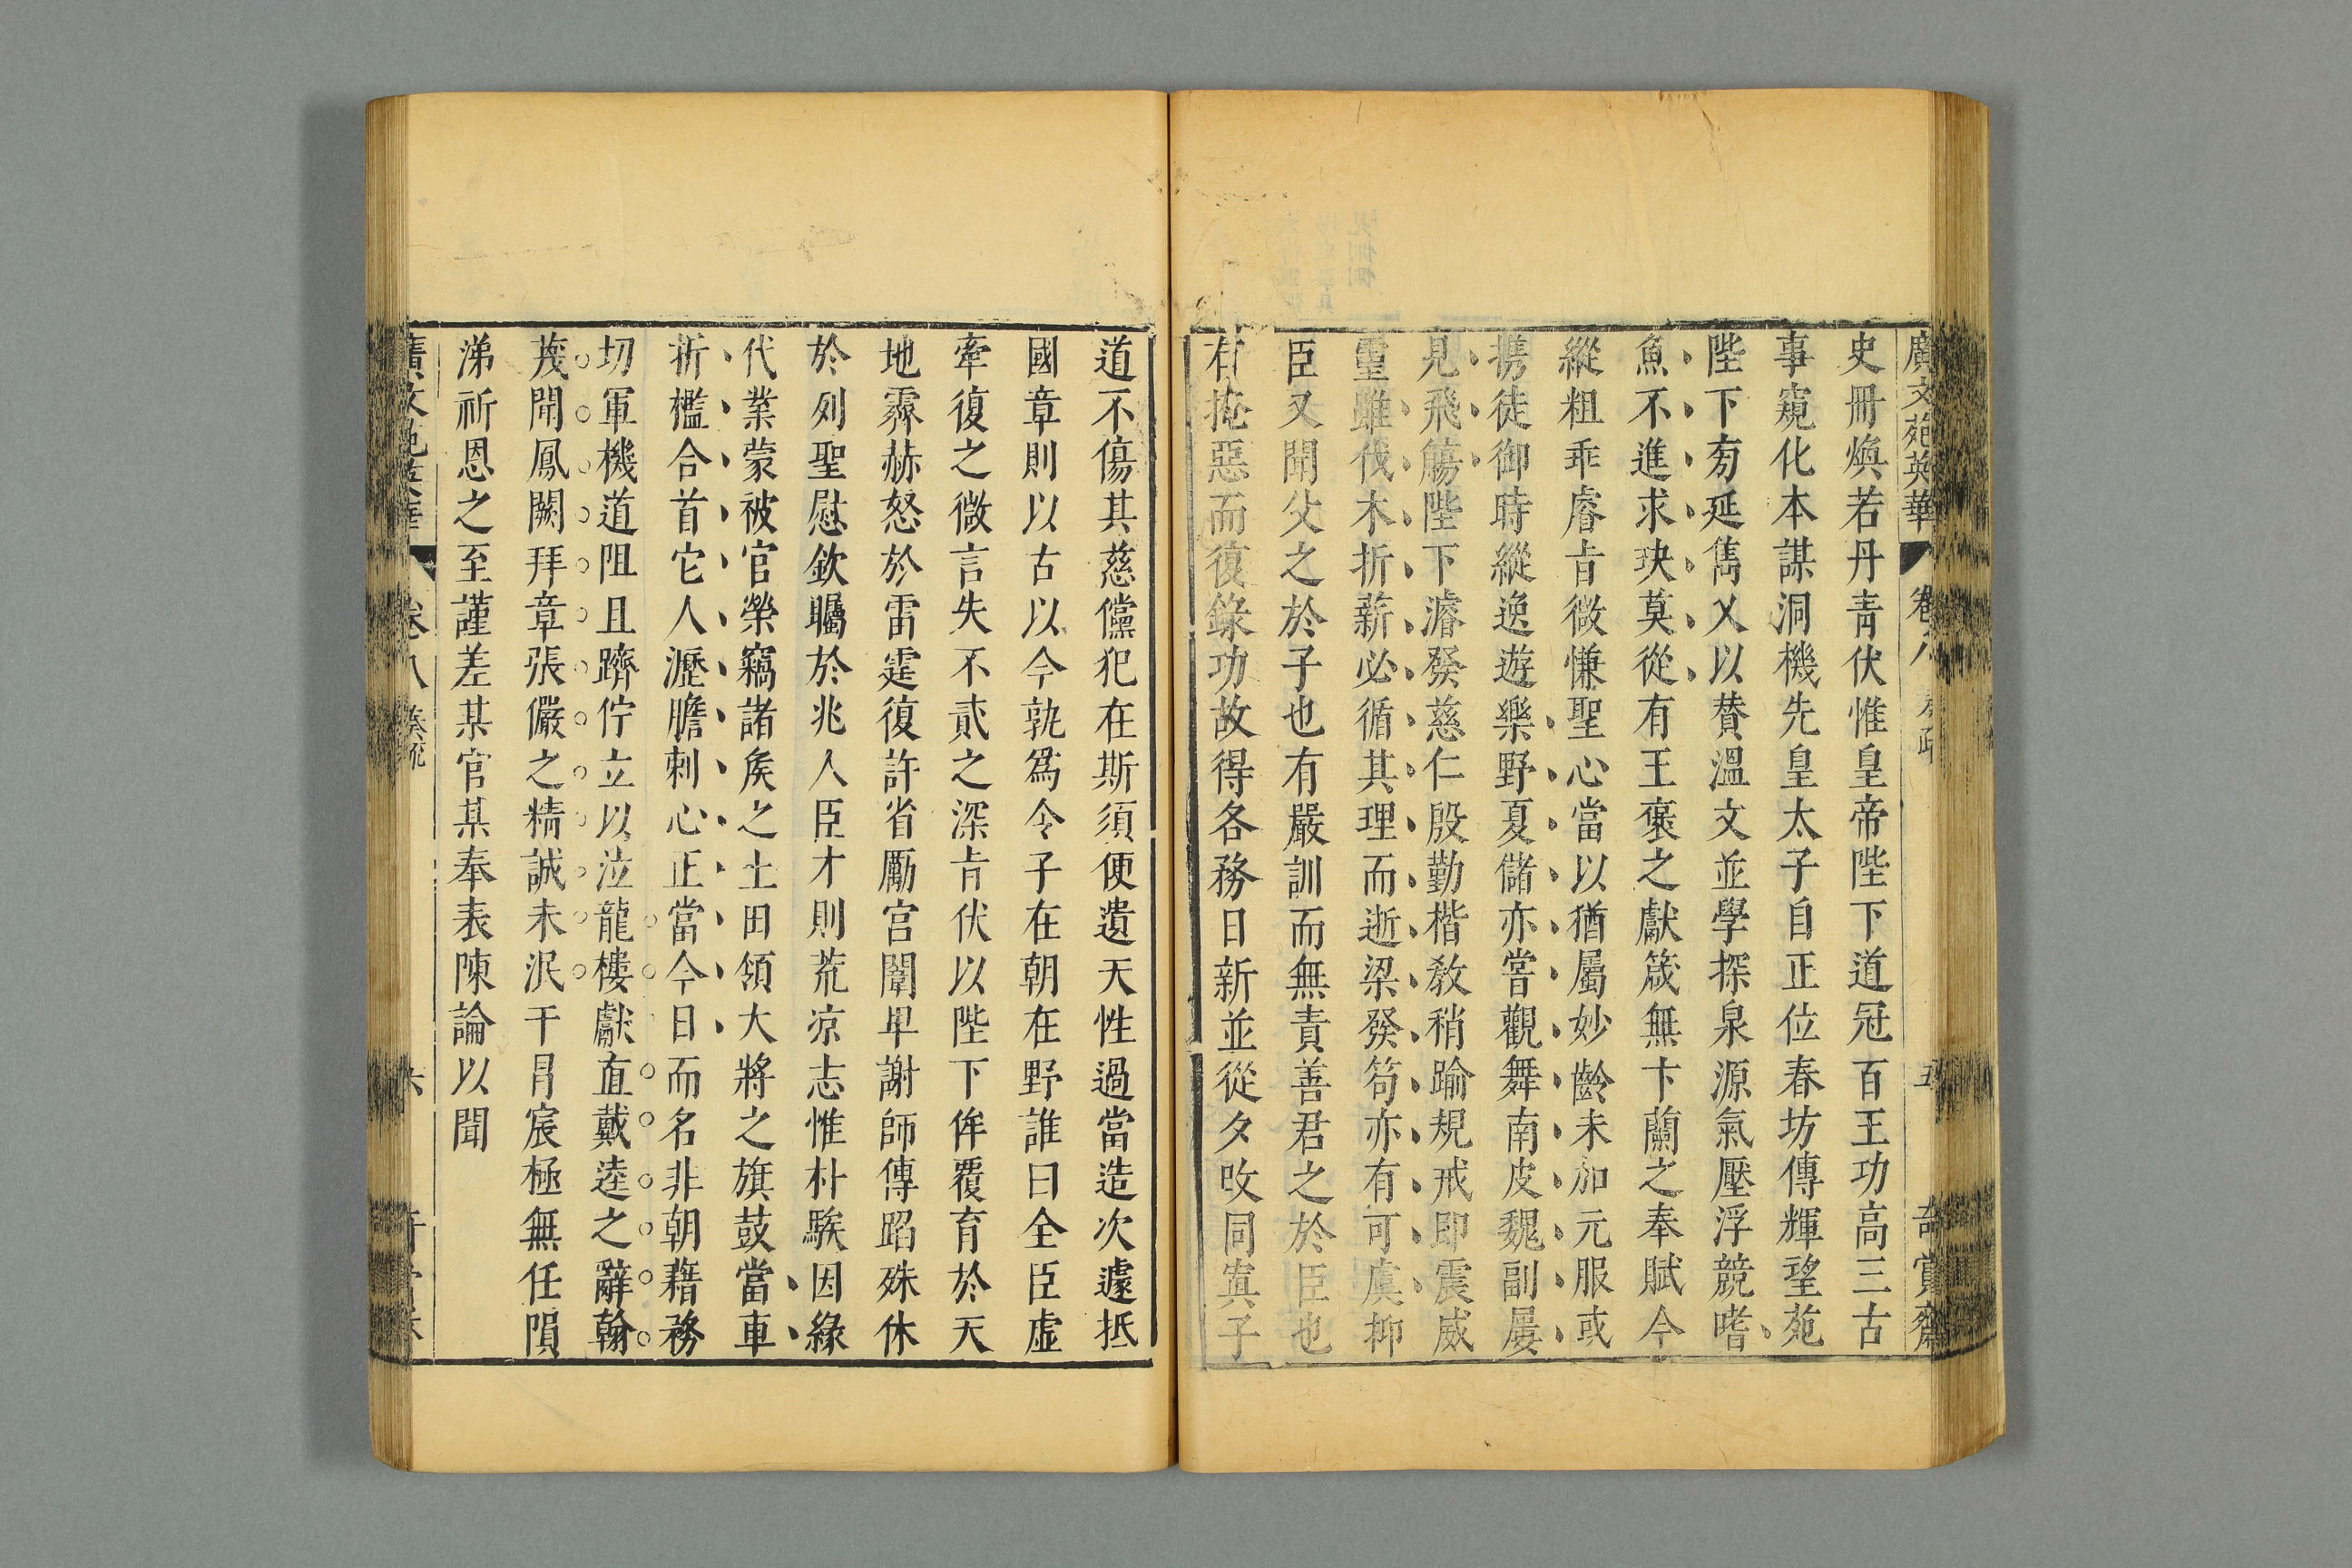 廣文苑英華 卷八 奏疏 五 奇賞齋
史冊煥若丹青伏惟皇帝陛下道冠百王功高三古
事窺化本謀洞機先皇太子自正位春坊傳輝望苑
陛下旁延儁乂以贊溫文並學探泉源氣壓浮競嗜
魚不進求玦莫從有王襃之獻箴無卞蘭之奉賦今
縱粗乖睿旨微慊聖心當以猶屬妙齡未加元服或
携徒御時縱逸遊樂野夏儲亦嘗觀舞南皮魏副屢
見飛觴陛下濬發慈仁殷勤楷教稍踰規戒即震威
靈雖伐木折薪必循其理而逝梁發笱亦有可虞抑
臣又聞父之於子也有嚴訓而無責善君之於臣也
有掩惡而復錄功故得各務日新並從夕改同寘子
道不傷其慈儻犯在斯須便遺天性過當造次遽抵
國章則以古以今孰爲令子在朝在野誰曰全臣虛
牽復之微言失不貳之深旨伏以陛下侔覆育於天
地霽赫怒於雷霆復許省勵宫闈卑謝師傅蹈殊休
於列聖慰欽矚於兆人臣才則荒凉志惟朴騃因緣
代業蒙被官榮竊諸矦之土田領大將之旗鼓當車
折檻合首它人瀝膽刺心正當今日而名非朝藉務
切軍機道阻且躋佇立以泣龍樓獻直戴逵之辭翰
莪聞鳳闕拜章張儼之精誠未泯干冐宸極無任隕
涕祈恩之至謹差某官某奉表陳論以聞
廣文苑英華 卷八 奏疏 六